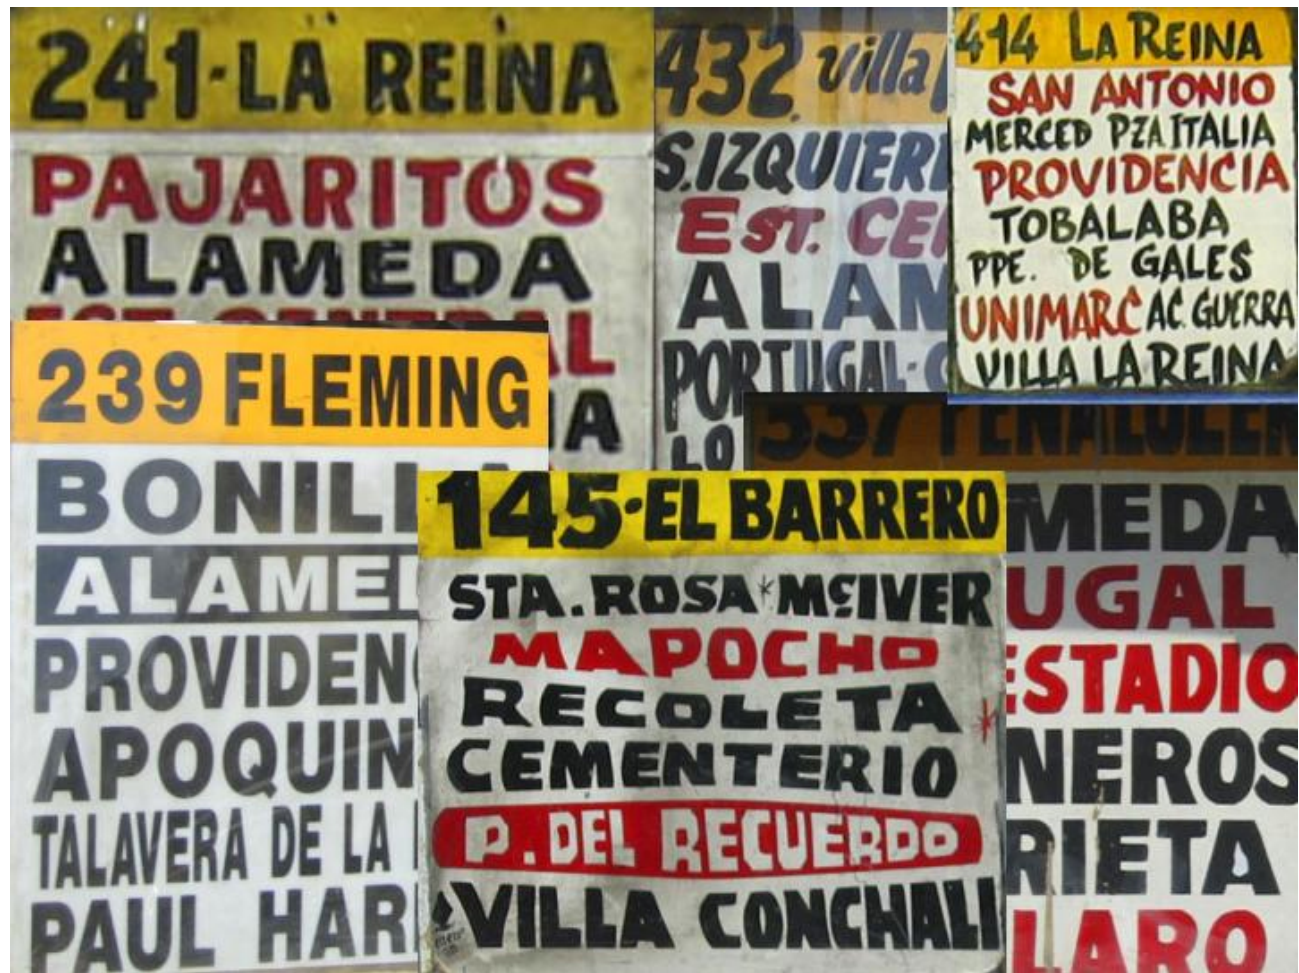 241-LA REINA
PAJARITOS
ALAMEDA
EST. CENTRAL
432 villa
S.IZQUIER
EST. CE
ALAM
PORTUGAL-
LO
414 LA REINA
SAN ANTONIO
MERCED PZA ITALIA
PROVIDENCIA
TOBALABA
PPE. DE GALES
UNIMARC AC. GUERRA
VILLA LA REINA
239 FLEMING
BONILL
ALAME
PROVIDEN
APOQUIN
TALAVERA DE LA
PAUL HAR
145-EL BARRERO
STA. ROSA * McIVER
MAPOCHO
RECOLETA
CEMENTERIO
P. DEL RECUERDO
VILLA CONCHALI
337 PEÑALOLEN
MEDA
UGAL
ESTADIO
NEROS
RIETA
LARO